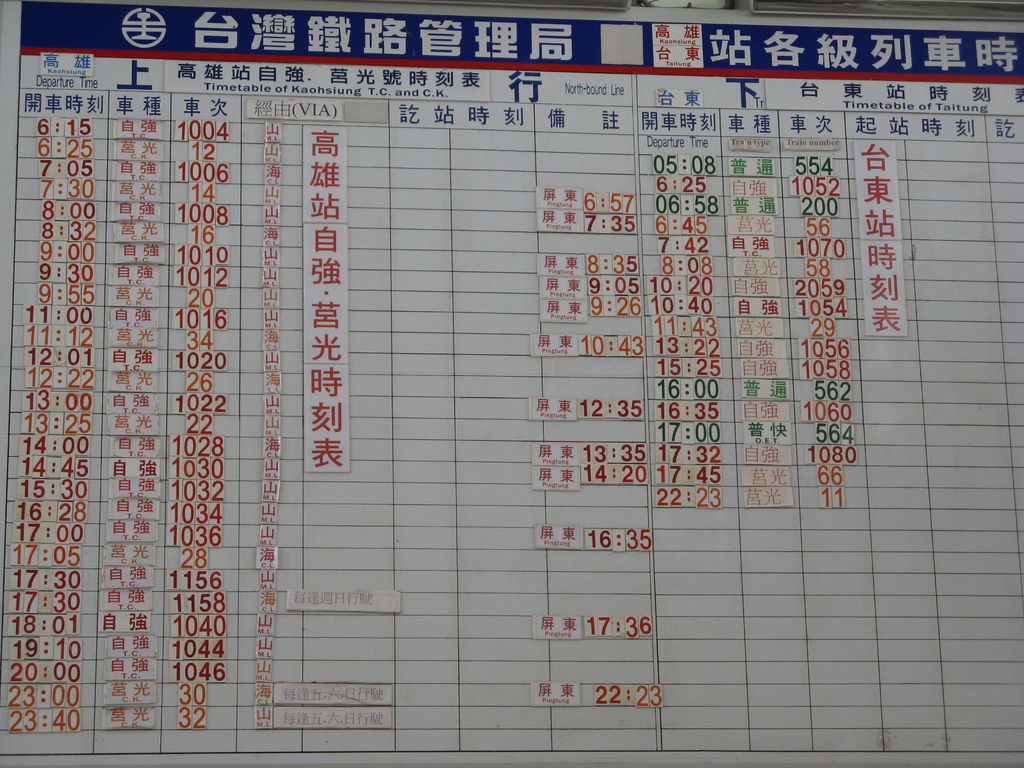 台灣鐵路管理局 高雄 Kaohsiung 台東 Taitung 站各級列車時
高雄 Kaohsiung
Departure Time
上 行
高雄站自強．莒光號時刻表
Timetable of Kaohsiung T.C. and C.K.
North-bound Line
開車時刻 車種 車次 經由(VIA) 訖站時刻 備註
高雄站自強·莒光時刻表
6:15 自強 T.C. 1004 山 M.L.
6:25 莒光 C.K. 12 山 M.L.
7:05 自強 T.C. 1006 海 C.L.
7:30 莒光 C.K. 14 山 M.L. 屏東 Pingtung 6:57
8:00 自強 T.C. 1008 山 M.L. 屏東 Pingtung 7:35
8:32 莒光 C.K. 16 海 C.L.
9:00 自強 T.C. 1010 山 M.L. 屏東 Pingtung 8:35
9:30 自強 T.C. 1012 山 M.L. 屏東 Pingtung 9:05
9:55 莒光 C.K. 20 山 M.L. 屏東 Pingtung 9:26
11:00 自強 T.C. 1016 山 M.L.
11:12 莒光 C.K. 34 海 C.L. 屏東 Pingtung 10:43
12:01 自強 T.C. 1020 山 M.L.
12:22 莒光 C.K. 26 海 C.L.
13:00 自強 T.C. 1022 山 M.L. 屏東 Pingtung 12:35
13:25 莒光 C.K. 22 山 M.L.
14:00 自強 T.C. 1028 海 C.L. 屏東 Pingtung 13:35
14:45 自強 T.C. 1030 山 M.L. 屏東 Pingtung 14:20
15:30 自強 T.C. 1032 山 M.L.
16:28 自強 T.C. 1034 山 M.L.
17:00 自強 T.C. 1036 山 M.L. 屏東 Pingtung 16:35
17:05 莒光 C.K. 28 海 C.L.
17:30 自強 T.C. 1156 山 M.L.
17:30 自強 T.C. 1158 海 C.L. 每逢週日行駛
18:01 自強 T.C. 1040 山 M.L. 屏東 Pingtung 17:36
19:10 自強 T.C. 1044 山 M.L.
20:00 自強 T.C. 1046 山 M.L.
23:00 莒光 C.K. 30 海 C.L. 每逢五.六.日行駛 屏東 Pingtung 22:23
23:40 莒光 C.K. 32 山 M.L. 每逢五.六.日行駛
台東 下
台東站時刻
Timetable of Taitung
開車時刻 車種 車次 起站時刻 訖
Departure Time Train type Train number
台東站時刻表
05:08 普通 554
6:25 自強 1052
06:58 普通 200
6:45 莒光 56
7:42 自強 T.C. 1070
8:08 莒光 58
10:20 自強 2059
10:40 自強 1054
11:43 莒光 29
13:22 自強 1056
15:25 自強 1058
16:00 普通 562
16:35 自強 1060
17:00 普快 O.E.T. 564
17:32 自強 1080
17:45 莒光 66
22:23 莒光 11